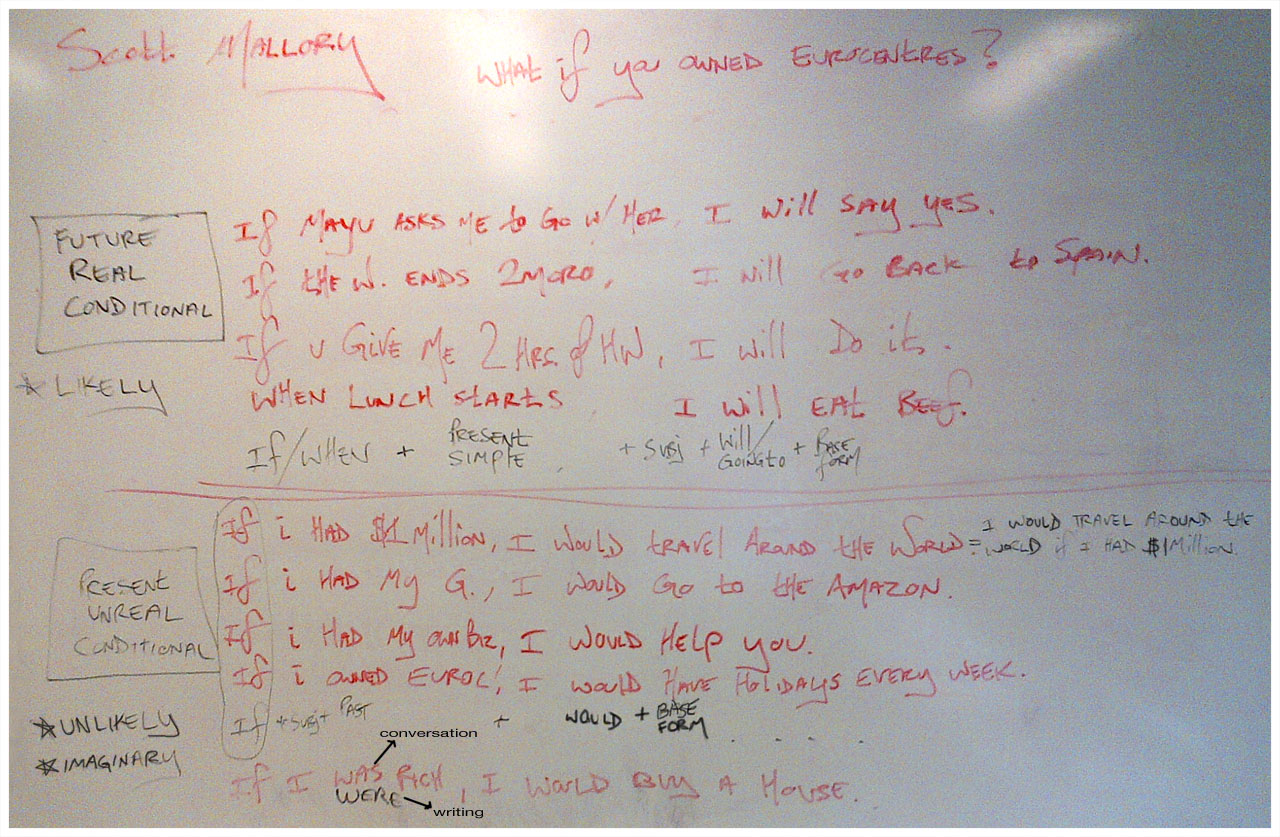 Scott MALLORY
WHAt if you OWNED EUROCENtRES?
FUTURE
REAL
CONDITIONAL
* LIKELY
If MAYU ASKS ME to Go W/ HER, I will SAY YES.
If tHE W. ENDS 2MORO, I will Go BACK to SPAIN.
If U GivE ME 2 HRS. of HW, I will Do it.
WHEN LUNCH StARtS I will EAt BEEF.
If/WHEN + PRESENT SIMPLE, + SUBJ + Will/GOING to + BASE FORM
PRESENT
UNREAL
CONDITIONAL
* UNLIKELY
* IMAGINARY
If i HAD $1 Million, I WOULD tRAVEl AROUND tHE WORLD = I WOULD TRAVEL AROUND tHE
WORLD if I HAD $1 Million.
If i HAD MY G., I WOULD GO tO tHE AMAZON.
If i HAD MY OWN BIZ, I WOULD HELP YOU.
If i OWNED EUROC', I WOULD HAVE HOLIDAYS EVERY WEEK.
If + SUBJ + PAST + WOULD + BASE FORM . . . .
conversation
If I WAS RICH, I WOULD BUY A HOUSE.
WERE
writing